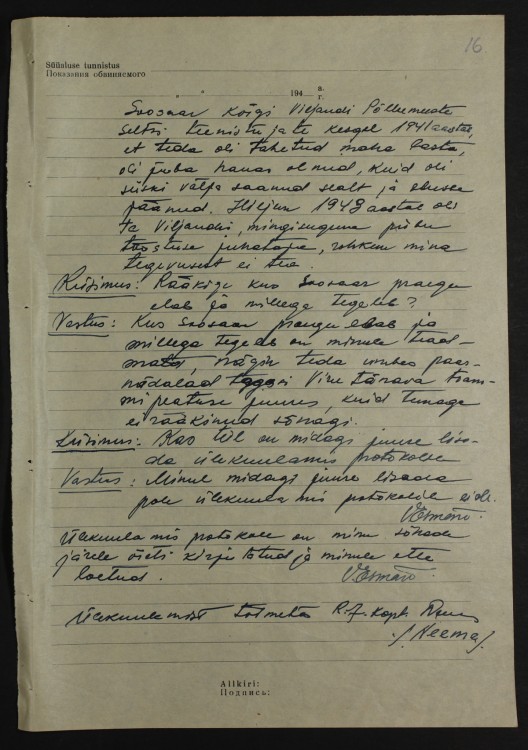 16
Süüaluse tunnistus
Показания обвиняемого
" " 194 a.
г.
Soosaar käigi Viljandi Põllumeeste
seltsi teenistujate keegel 1941 aastal,
et teda oli tahetud maha lasta,
oli juba hauas olnud, kuid oli
siiski välja saanud sealt ja ellu
jäänud. Hiljem 1943 aastal oli
ta Viljandis, mingisuguse piima
tööstuse juhataja, rohkem mina
tegevusest ei tea.
Küsimus: Rääkige kus Soosaar praegu
elab ja millega tegeleb?
Vastus: Kus Soosaar praegu elab ja
millega tegeleb on minule tead-
mata, nägin teda umbes paar
nädalad tagasi Viru tänava tram-
mi peatuse juures, kuid temaga
ei rääkinud sõnagi.
Küsimus: Kas Teil on midagi juure lisa-
da ülekuulamis protokolle
Vastus: Minul midagi juure lisada
pole ülekuulamis protokolile ei ole.
Ülekuulamis protokoll on minu sõnade
järele õieti kirjutatud ja minule ette
loetud.
Ülekuulamist toimetas R.J. kapt.
/Neema/.
Allkiri:
Подпись: